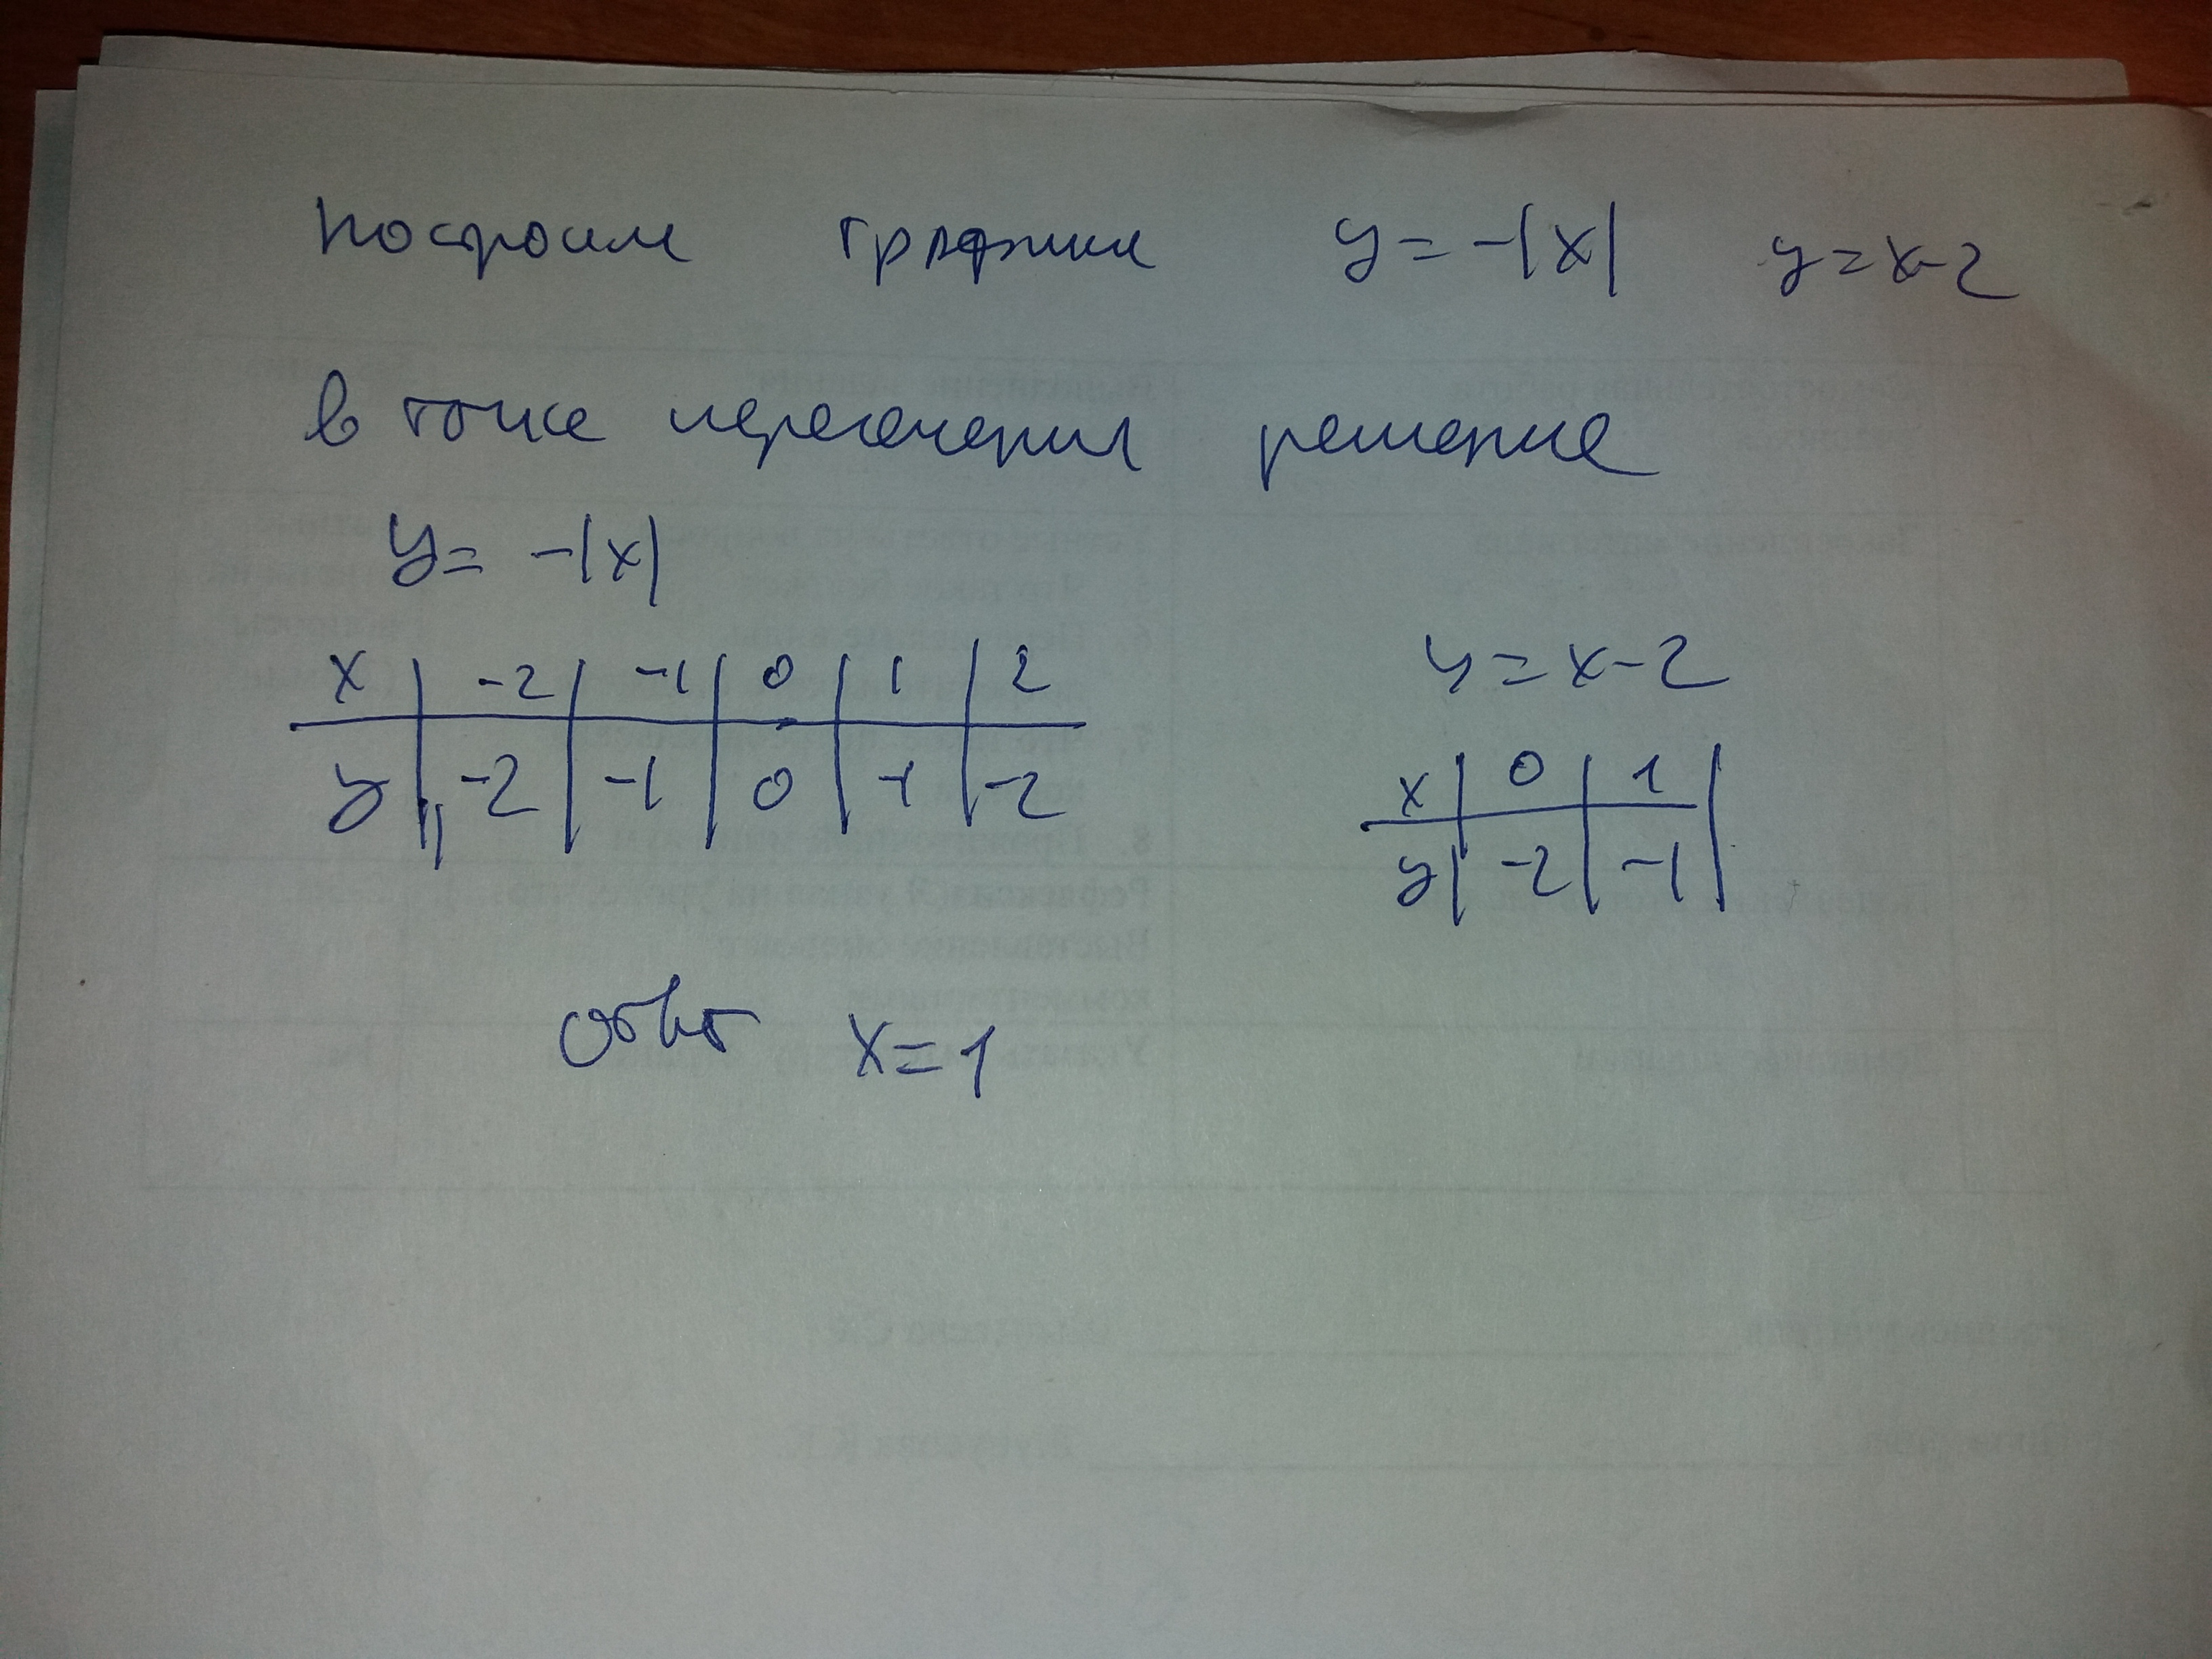 Построим графики y = -|x| y = x-2
в точке пересечения решение
y = -|x|
x | -2 | -1 | 0 | 1 | 2
y | -2 | -1 | 0 | -1 | -2
y = x-2
x | 0 | 1 |
y | -2 | -1 |
ответ x = 1